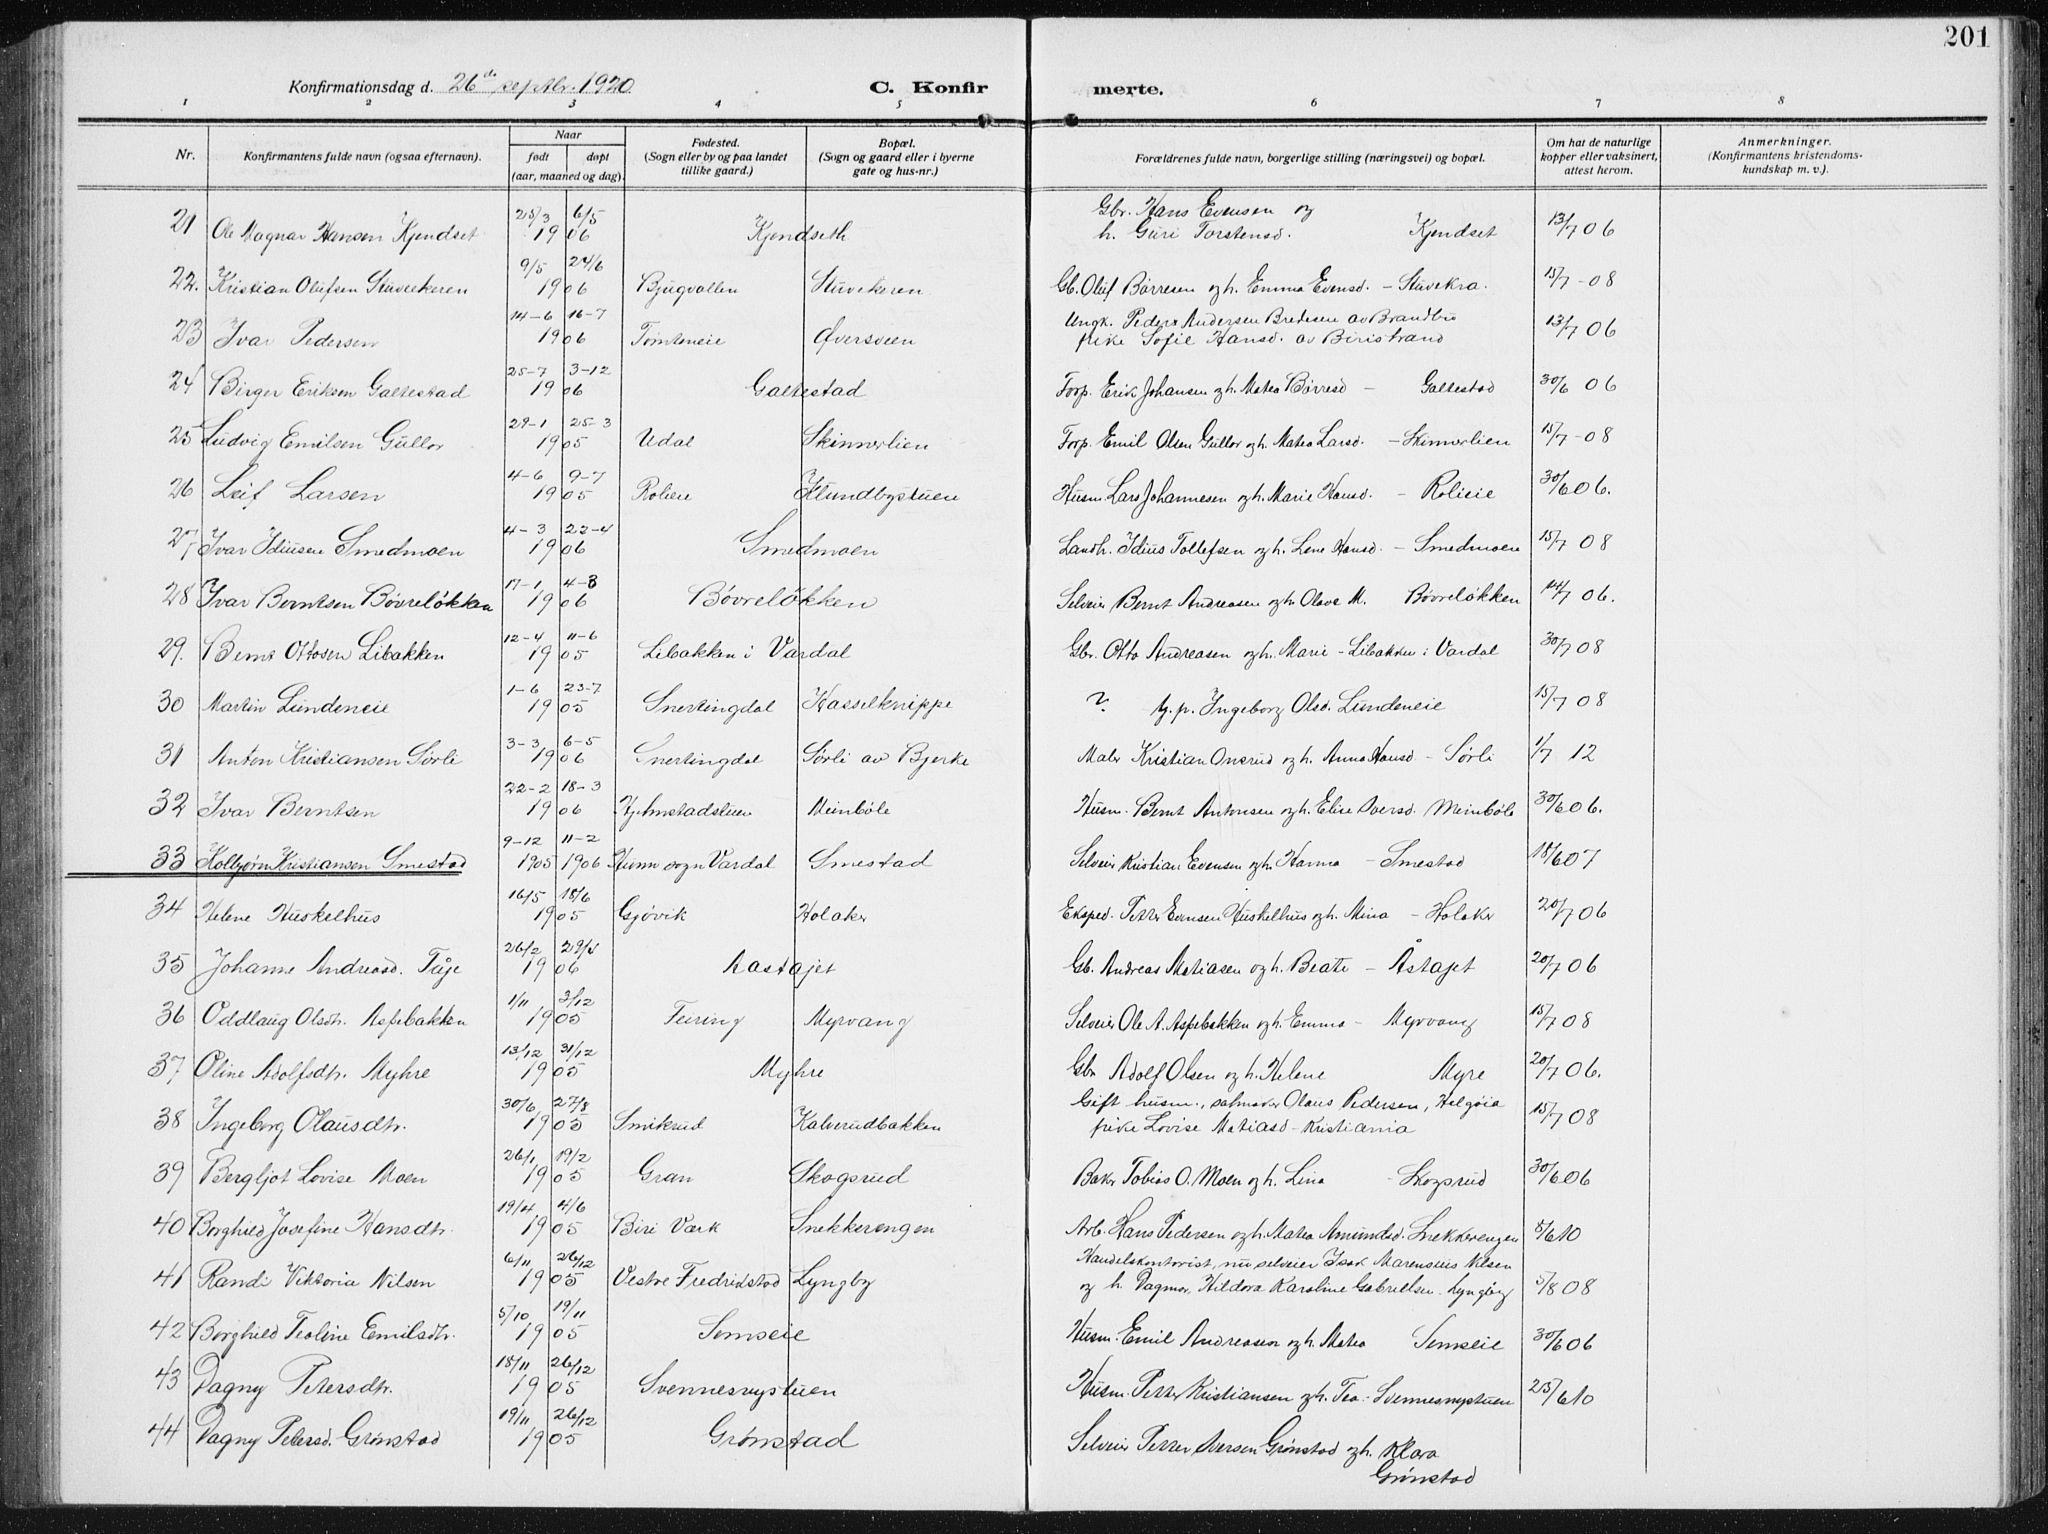 201
Konfirmationsdag d. 26de septbr. 1920 C. Konfir merte.
1 2 3 4 5 6 7 8
Nr. Konfirmantens fulde navn (ogsaa efternavn). Naar født døpt (aar, maaned og dag). Fødested. (Sogn eller by og paa landet tillike gaard.) Bopæl. (Sogn og gaard eller i byerne gate og hus-nr.) Forældrenes fulde navn, borgerlige stilling (næringsvei) og bopæl. Om hat de naturlige kopper eller vaksinert, attest herom. Anmerkninger. (Konfirmantens kristendoms- kundskap m. v.).
21 Ole Magnar Hansen Kjendset 25/3 6/5 1906 Kjendseth Gbr. Hans Evensen og h. Guri Torstensd. Kjendset 13/7 06
22. Kristian Olufsen Stuvekeren 9/5 24/6 1906 Bjugvollen Stuvekeren Gb. Oluf Børresen og h. Emma Evensd – Stuvekra. 15/7-08
23 Ivar Pedersen 14-6 16-7 1906 Tømteneie Øversveen Ungk. Peder Andersen Bredesen av Brandbu pike Sofie Hansd. av Biristrand 13/7 06
24 Birger Eriksen Galtestad 25-7 3-12 1906 Galtestad Forp. Erik Johansen og h. Matea Børresd – Galtestad 30/6 06
25 Ludvig Emilsen Gullor 29-1 25-3 1905 Udal Skinnerlien Forp. Emil Olsen Gullor og h. Matea Larsd. – Skinnerlien 15/7-08
26 Leif Larsen 4-6 9-7 1905 Roleie Klundbystuen Husm. Lars Johannesen og h. Marie Hansd. – Roleie 30/6 06.
27 Ivar Idiusen Smedmoen 4-3 22-4 1906 Smedmoen Landh. Idius Tollefsen og h. Lene Hansd. – Smedmoen 15/7 08
28 Ivar Berntsen Bövrelökken 17-1 4-3 1906 Bövrelökken Selveier Bernt Andreasen og h. Olave M. Bövrelökken 14/7 06.
29. Bernt Ottosen Libakken 12-4 11-6 1905 Libakken i Vardal Gbr. Otto Andreasen og h. Marie – Libakken i Vardal 30/7 08
30 Martin Lundeneie 1-6 23-7 1905 Snertingdal Hasselknippe ? g.p. Ingeborg Olsd. Lundeneie 15/7 08
31 Anton Kristiansen Sørli 3-3 6-5 1906 Snertingdal Sørli av Bjerke Maler Kristian Onsrud og h. Anna Hansd – Sørli 1/7 12
32 Ivar Berntsen 22-2 18-3 1906 Hjelmstadstuen Meinböle Husm. Bernt Antonsen og h. Elise Iversd. Meinböle 30/6 06.
33 Kolbjørn Kristiansen Smestad 9-12 11-2 1905 1906 Hunn sogn Vardal Smestad Selveier Kristian Evensen og h. Hanna – Smestad 18/6 07
34 Helene Huskelhus 16/5 18/6 1905 Gjøvik Holaker Eksped. Petter Evensen Huskelhus og h. Mina – Holaker 20/7 06
35 Johanne Andreasd. Tåje 26/2 29/4 1906 Aastajet Gb. Andreas Matiasen og h. Beate – Åstajet 20/7 06
36 Oddlaug Olsdtr. Aspebakken 1/11 3/12 1905 Feiring Myrvang Selveier Ole A. Aspebakken og h. Emma – Myrvang 15/7 08
37 Oline Adolfsdtr. Myhre 13/12 31/12 1905 Myhre Gbr Adolf Olsen og h. Helene Myre 20/7 06.
38 Ingeborg Olausdtr. 30/6 27/8 1905 Smikrud Kalverudbakken Gift husm., salmaker Olaus Pedersen, Helgøia pike Lovise Matiasd – Kristiania 15/7 08
39 Bergljot Lovise Moen 26/1 19/2 1905 Gran Skogsrud Baker Tobias O. Moen og h. Lina – Skogsrud 30/6 06
40 Borghild Josefine Hansdtr. 19/4 4/6 1905 Biri Værk Snekkerengen Arb. Hans Pedersen og h. Matea Amundsd. Snekkerengen 5/6 10
41 Randi Viktoria Nilsen 6/11 26/12 1905 Vestre Fredrikstad Lyngby Handelskontorist, nu selveier Isak Marensius Nilsen og h. Dagmar, Hildora Karoline Gabrielsen. Lyngby 5/8 08
42 Borghild Teoline Emilsdtr. 5/10 19/11 1905 Semseie Husm. Emil Andreasen og h. Matea Semseie 30/6 06
43 Dagny Petersdtr. 18/11 26/12 1905 Svennesnystuen Husm. Petter Kristiansen og h. Tea – Svennesnystuen 25/6 10
44 Dagny Petersd. Grønstad 19/11 26/12 1905 Grønstad Selveier Petter Iversen Grønstad og h. Klara Grønstad